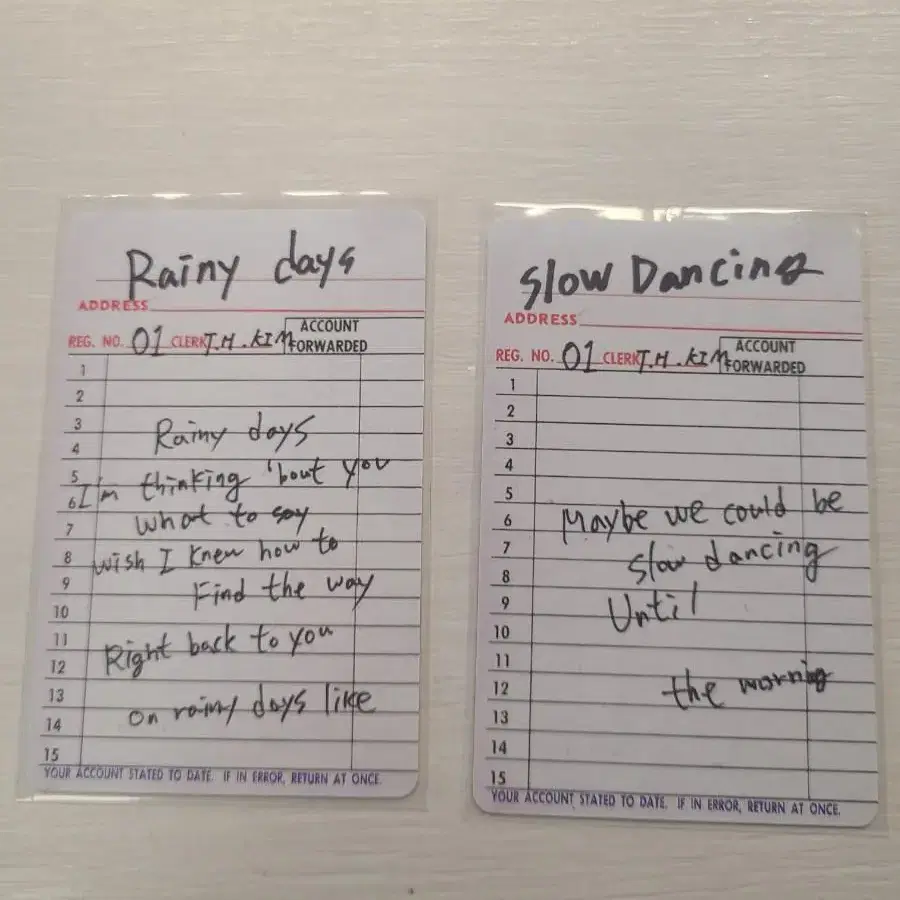 Rainy days
ADDRESS
REG. NO. 01 CLERK T.H. KIM ACCOUNT FORWARDED
1
2
3
4
5
6
7
8
9
10
11
12
13
14
15
Rainy days
I'm thinking 'bout you
what to say
wish I knew how to
Find the way
Right back to you
on rainy days like
YOUR ACCOUNT STATED TO DATE. IF IN ERROR, RETURN AT ONCE.
Slow Dancing
ADDRESS
REG. NO. 01 CLERK T.H. KIM ACCOUNT FORWARDED
1
2
3
4
5
6
7
8
9
10
11
12
13
14
15
Maybe we could be
slow dancing
Until
the morning
YOUR ACCOUNT STATED TO DATE. IF IN ERROR, RETURN AT ONCE.